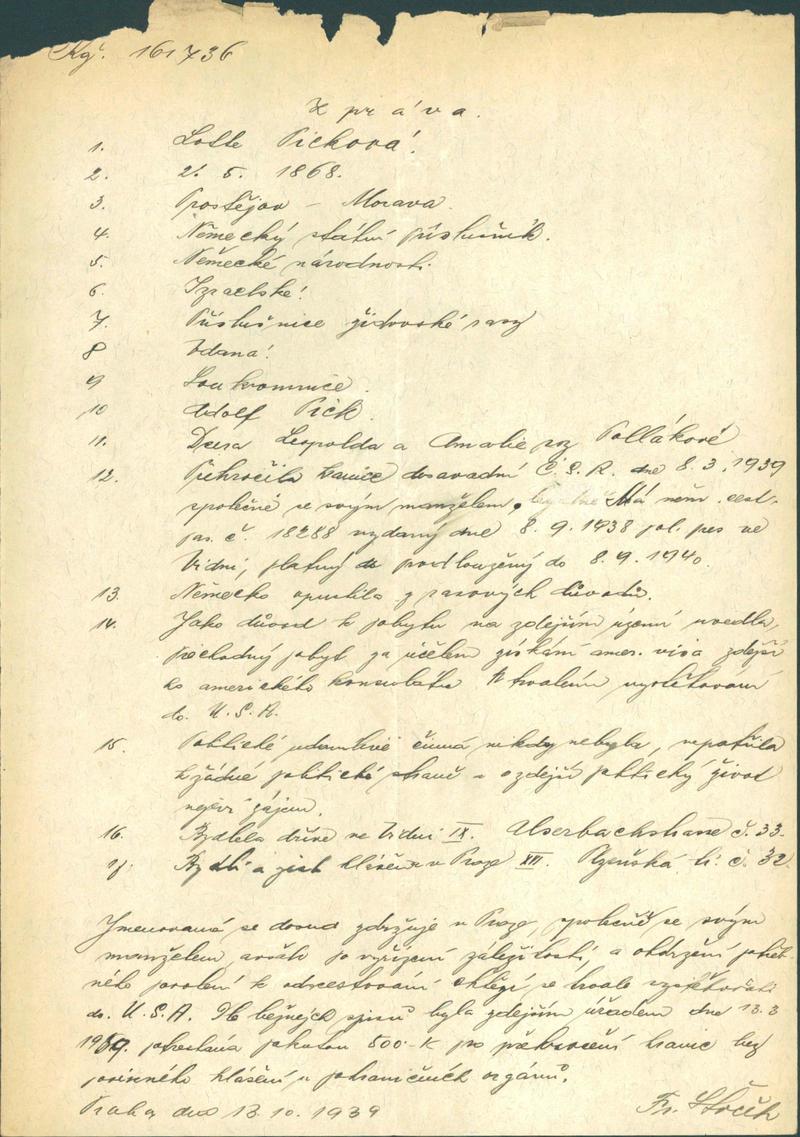 Kgř. 161736
Zpráva.
1. Lotte Picková.
2. 2. 5. 1868.
3. Prostějov – Morava.
4. Německý státní příslušník.
5. Německé národnosti.
6. Izraelské.
7. Příslušnice židovské rasy
8 Vdaná.
9 Soukromnice.
10 Adolf Pick.
11. Dcera Leopolda a Amalie roz. Pollákové
12. Překročila hranice dosavadní Č. S. R. dne 8. 3. 1939
společně se svým manželem. Má něm. cest.
pas. č. 18288 vydaný dne 8. 9. 1938 pol. pres ve
Vídni, platný do prodloužený do 8. 9. 1940.
13. Německo opustila z rasových důvodů.
14. Jako důvod k pobytu na zdejším území uvedla,
přechodný pobyt za účelem získání amer. visa zdejší
ho amerického konsulátu k trvalém vystěhování
do U. S. A.
15. Politické činná nikdy nebyla, nepatřila
k žádné politické straně a o zdejší politický život
nejeví zájem.
16. Bydlela dříve ve Vídni IX. Alserbachstrasse č. 33.
17. Bydlí a jest hlášena v Praze XVI. Plzeňská tř. č. 32.
Jmenovaná se dosud zdržuje v Praze, společně se svým
manželem, avšak po vyřízení záležitostí, a obdržení potřeb-
ného povolení k odcestování chtějí se trvale vystěhovati
do U. S. A. Dle bežných spisů byla zdejším úřadem dne 13. 3
1939. potrestána pokutou 500.-K pro překročení hranic bez
povinného hlášení u pohraničních orgánů.
Praha dne 13. 10. 1939
Fr.